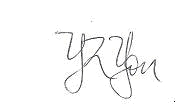 YR You